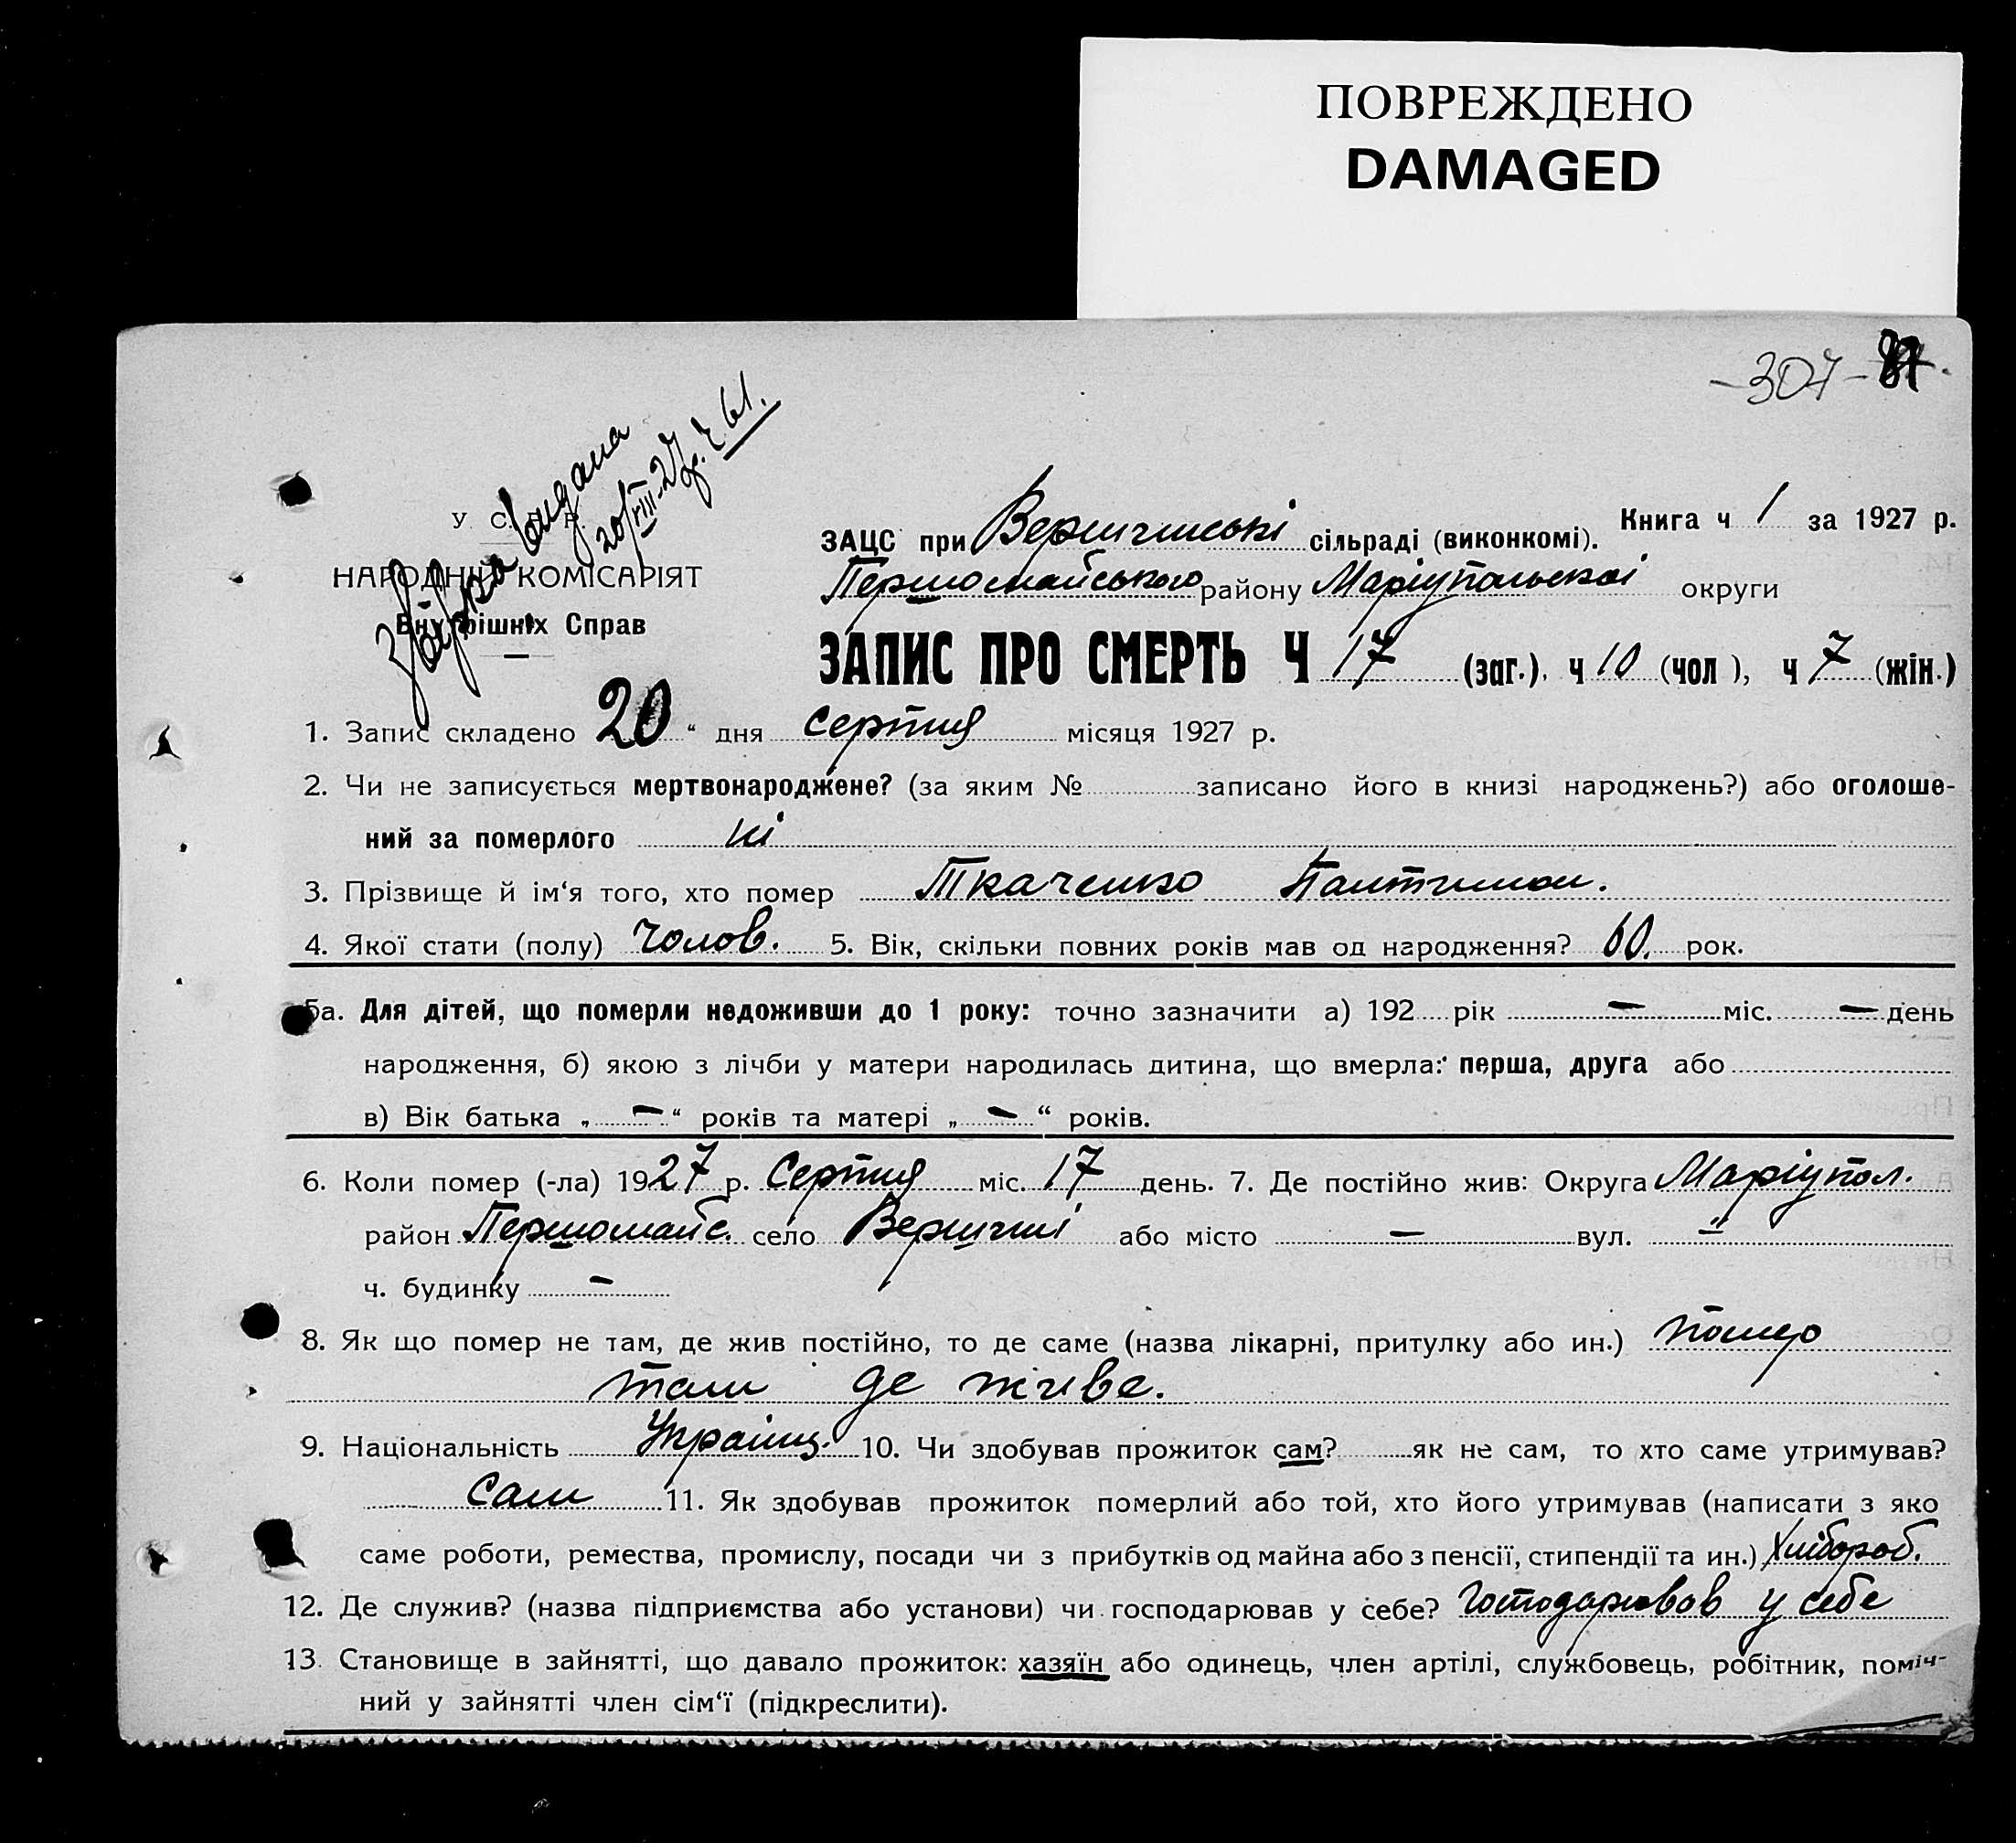 ПОВРЕЖДЕНО
DAMAGED
-307-
У. С. Р. Р.
НАРОДНІЙ КОМІСАРІЯТ
Внутрішніх Справ
видана
20/VIII-27р.
61.
Книга ч 1 за 1927 р.
ЗАЦС при Вершинські сільраді (виконкомі).
Першомайського району Маріупольскоі округи
ЗАПИС ПРО СМЕРТЬ Ч 17 (заг.), ч 10 (чол ), ч 7 (жін.)
1. Запис складено 20 “ дня серпня місяця 1927 р.
2. Чи не записується мертвонароджене? (за яким № записано його в книзі народжень?) або оголоше-
ний за померлого ні
3. Прізвище й ім‘я того, хто помер Ткаченко Пантилим.
4. Якої стати (полу) Чолов. 5. Вік, скільки повних років мав од народження? 60. рок.
5а. Для дітей, що померли недоживши до 1 року: точно зазначити а) 192 рік — міс. — день
народження, б) якою з лічби у матери народилась дитина, що вмерла: перша, друга або
в) Вік батька „ — “ років та матері „ — “ років.
6. Коли помер (-ла) 1927 р. Серпня міс. 17 день. 7. Де постійно жив: Округа Маріупол.
район Першомайс. село Вершині або місто — вул. "
ч. будинку —
8. Як що помер не там, де жив постійно, то де саме (назва лікарні, притулку або ин.) помер
там де живе.
9. Національність Украінц. 10. Чи здобував прожиток сам? як не сам, то хто саме утримував?
Сам 11. Як здобував прожиток померлий або той, хто його утримував (написати з яко
саме роботи, ремества, промислу, посади чи з прибутків од майна або з пенсії, стипендії та ин.) Хлібороб.
12. Де служив? (назва підприємства або установи) чи господарював у себе? господарював у себе
13. Становище в зайнятті, що давало прожиток: хазяїн або одинець, член артілі, службовець, робітник, поміч-
ний у зайнятті член сім‘ї (підкреслити).